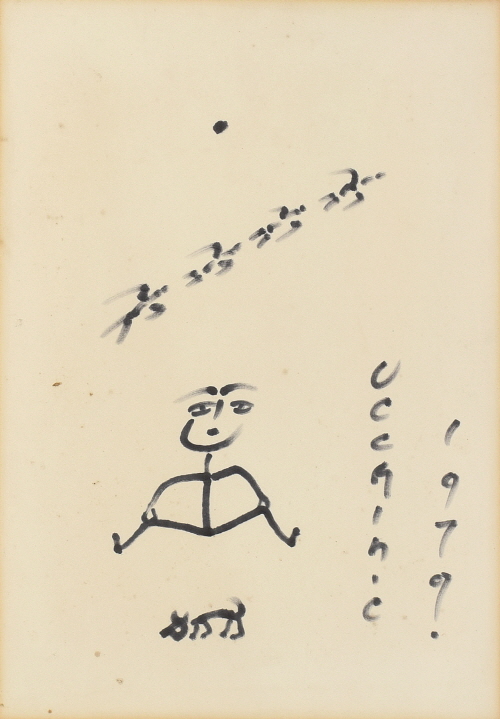 UCCHIN.C
1979.